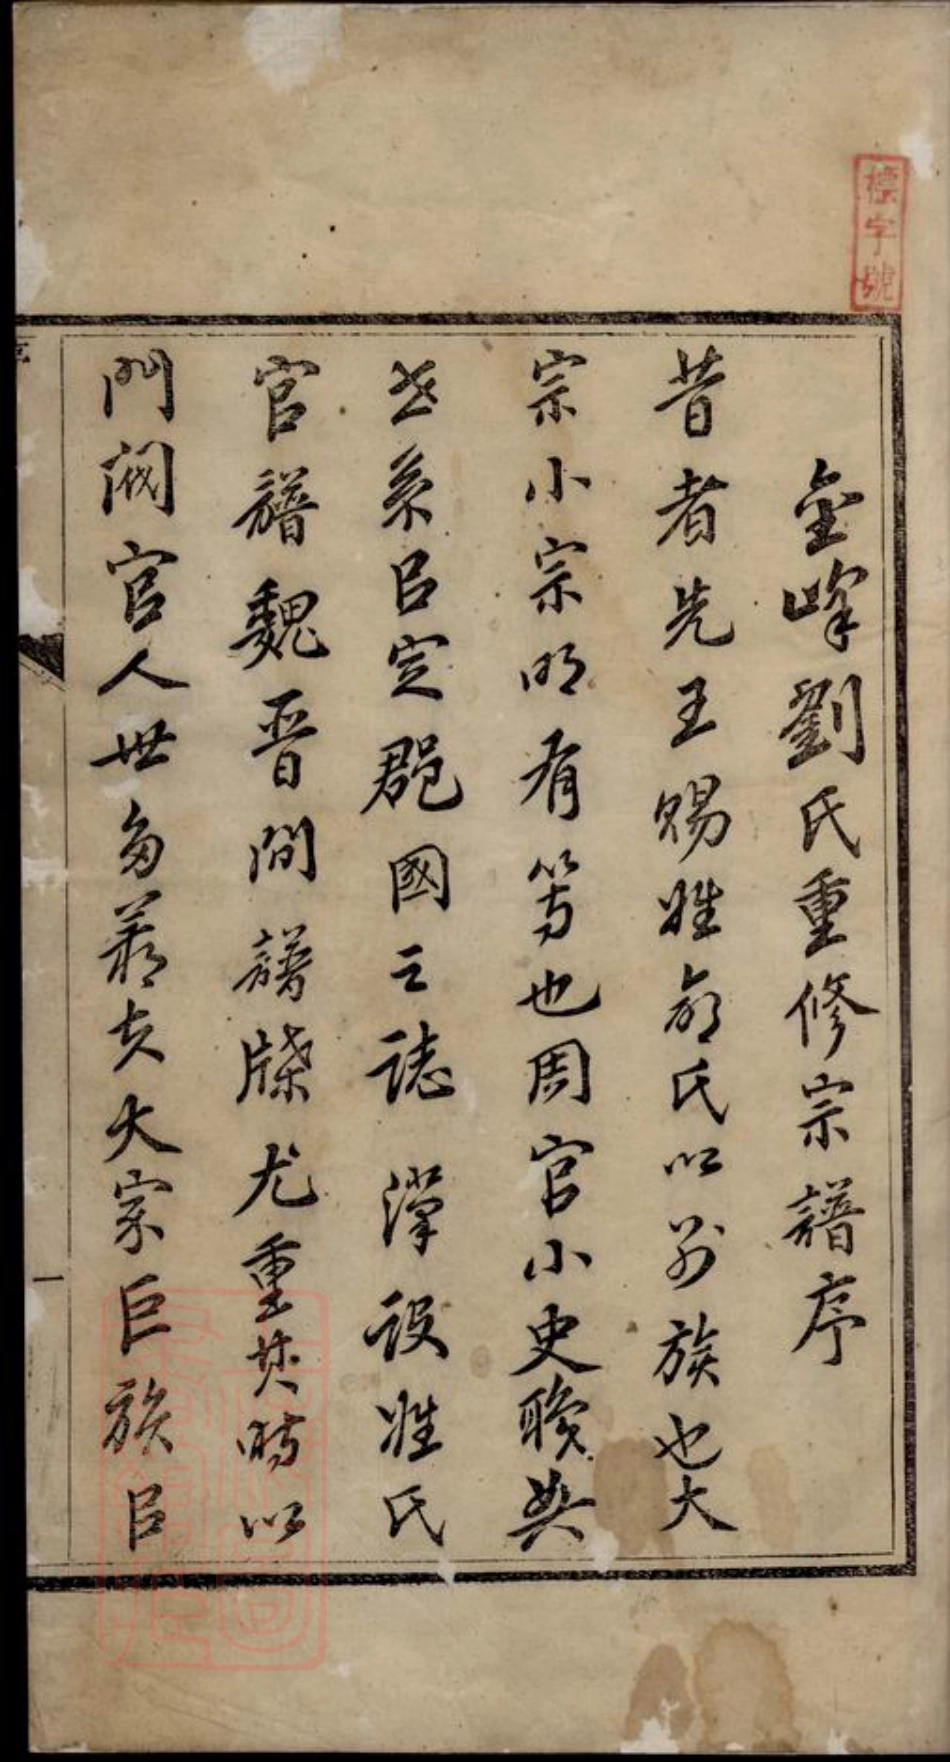 標字號
金峰劉氏重修宗譜序
昔者先王賜姓命氏以别族也大
宗小宗明有等也周官小史職奠
世系以定郡國之誌漢設姓氏
官譜魏晋間譜牒尤重其時以
門閥官人世多著夫大宗巨族以
序
一